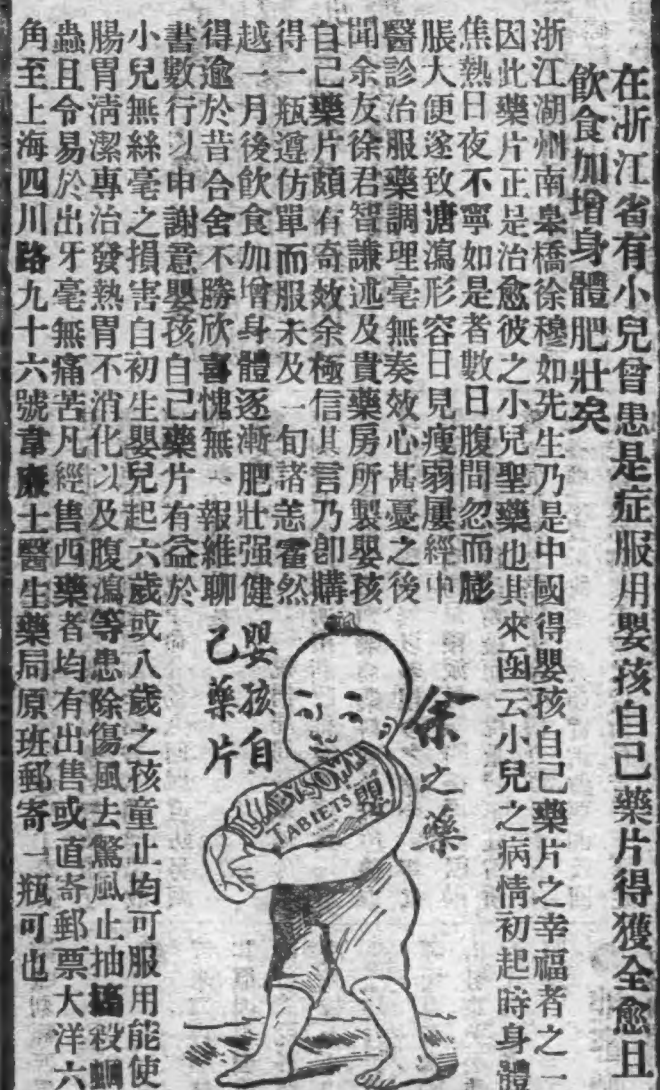 在浙江省有小兒曾患是症服用嬰孩自己藥片得獲全愈且
飲食加增身體肥壯矣
浙江湖州南皋橋徐穆如先生乃是中國得嬰孩自己藥片之幸福者之一
因此藥片正是治愈彼之小兒聖藥也其來函云小兒之病情初起時身體
焦熱日夜不寧如是者數日腹間忽而膨
脹大便遂致溏瀉形容日見瘦弱屢經中
醫診治服藥調理毫無奏效心甚憂之後
聞余友徐君智謙述及貴藥房所製嬰孩
自己藥片頗有奇效余極信其言乃卽購
得一瓶遵仿單而服未及一旬諸恙霍然
越一月後飲食加增身體逐漸肥壯强健
得逾於昔合舍不勝欣喜愧無一報維聊
書數行以申謝意嬰孩自己藥片有益於
小兒無絲毫之損害自初生嬰兒起六歲或八歲之孩童止均可服用能使
腸胃淸潔專治發熱胃不消化以及腹瀉等患除傷風去驚風止抽搐殺蛔
蟲且令易於出牙毫無痛苦凡經售西藥者均有出售或直寄郵票大洋六
角至上海四川路九十六號韋廉士醫生藥局原班郵寄一瓶可也
余之藥
嬰孩自
己藥片
BABY'S OWN
TABLETS
嬰